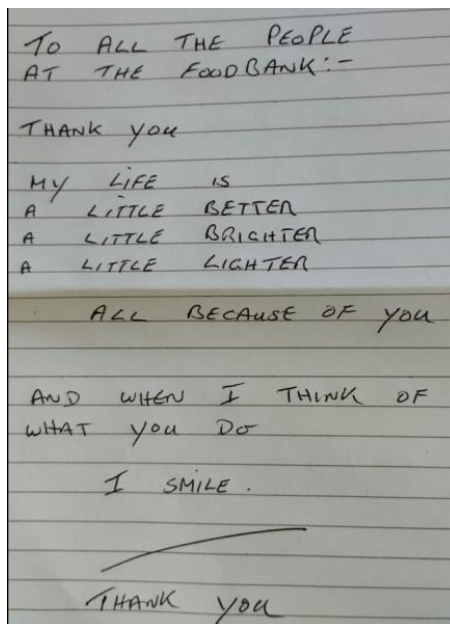 TO ALL THE PEOPLE
AT THE FOODBANK:-
THANK YOU
MY LIFE IS
A LITTLE BETTER
A LITTLE BRIGHTER
A LITTLE LIGHTER
ALL BECAUSE OF YOU
AND WHEN I THINK OF
WHAT YOU DO
I SMILE.
THANK YOU